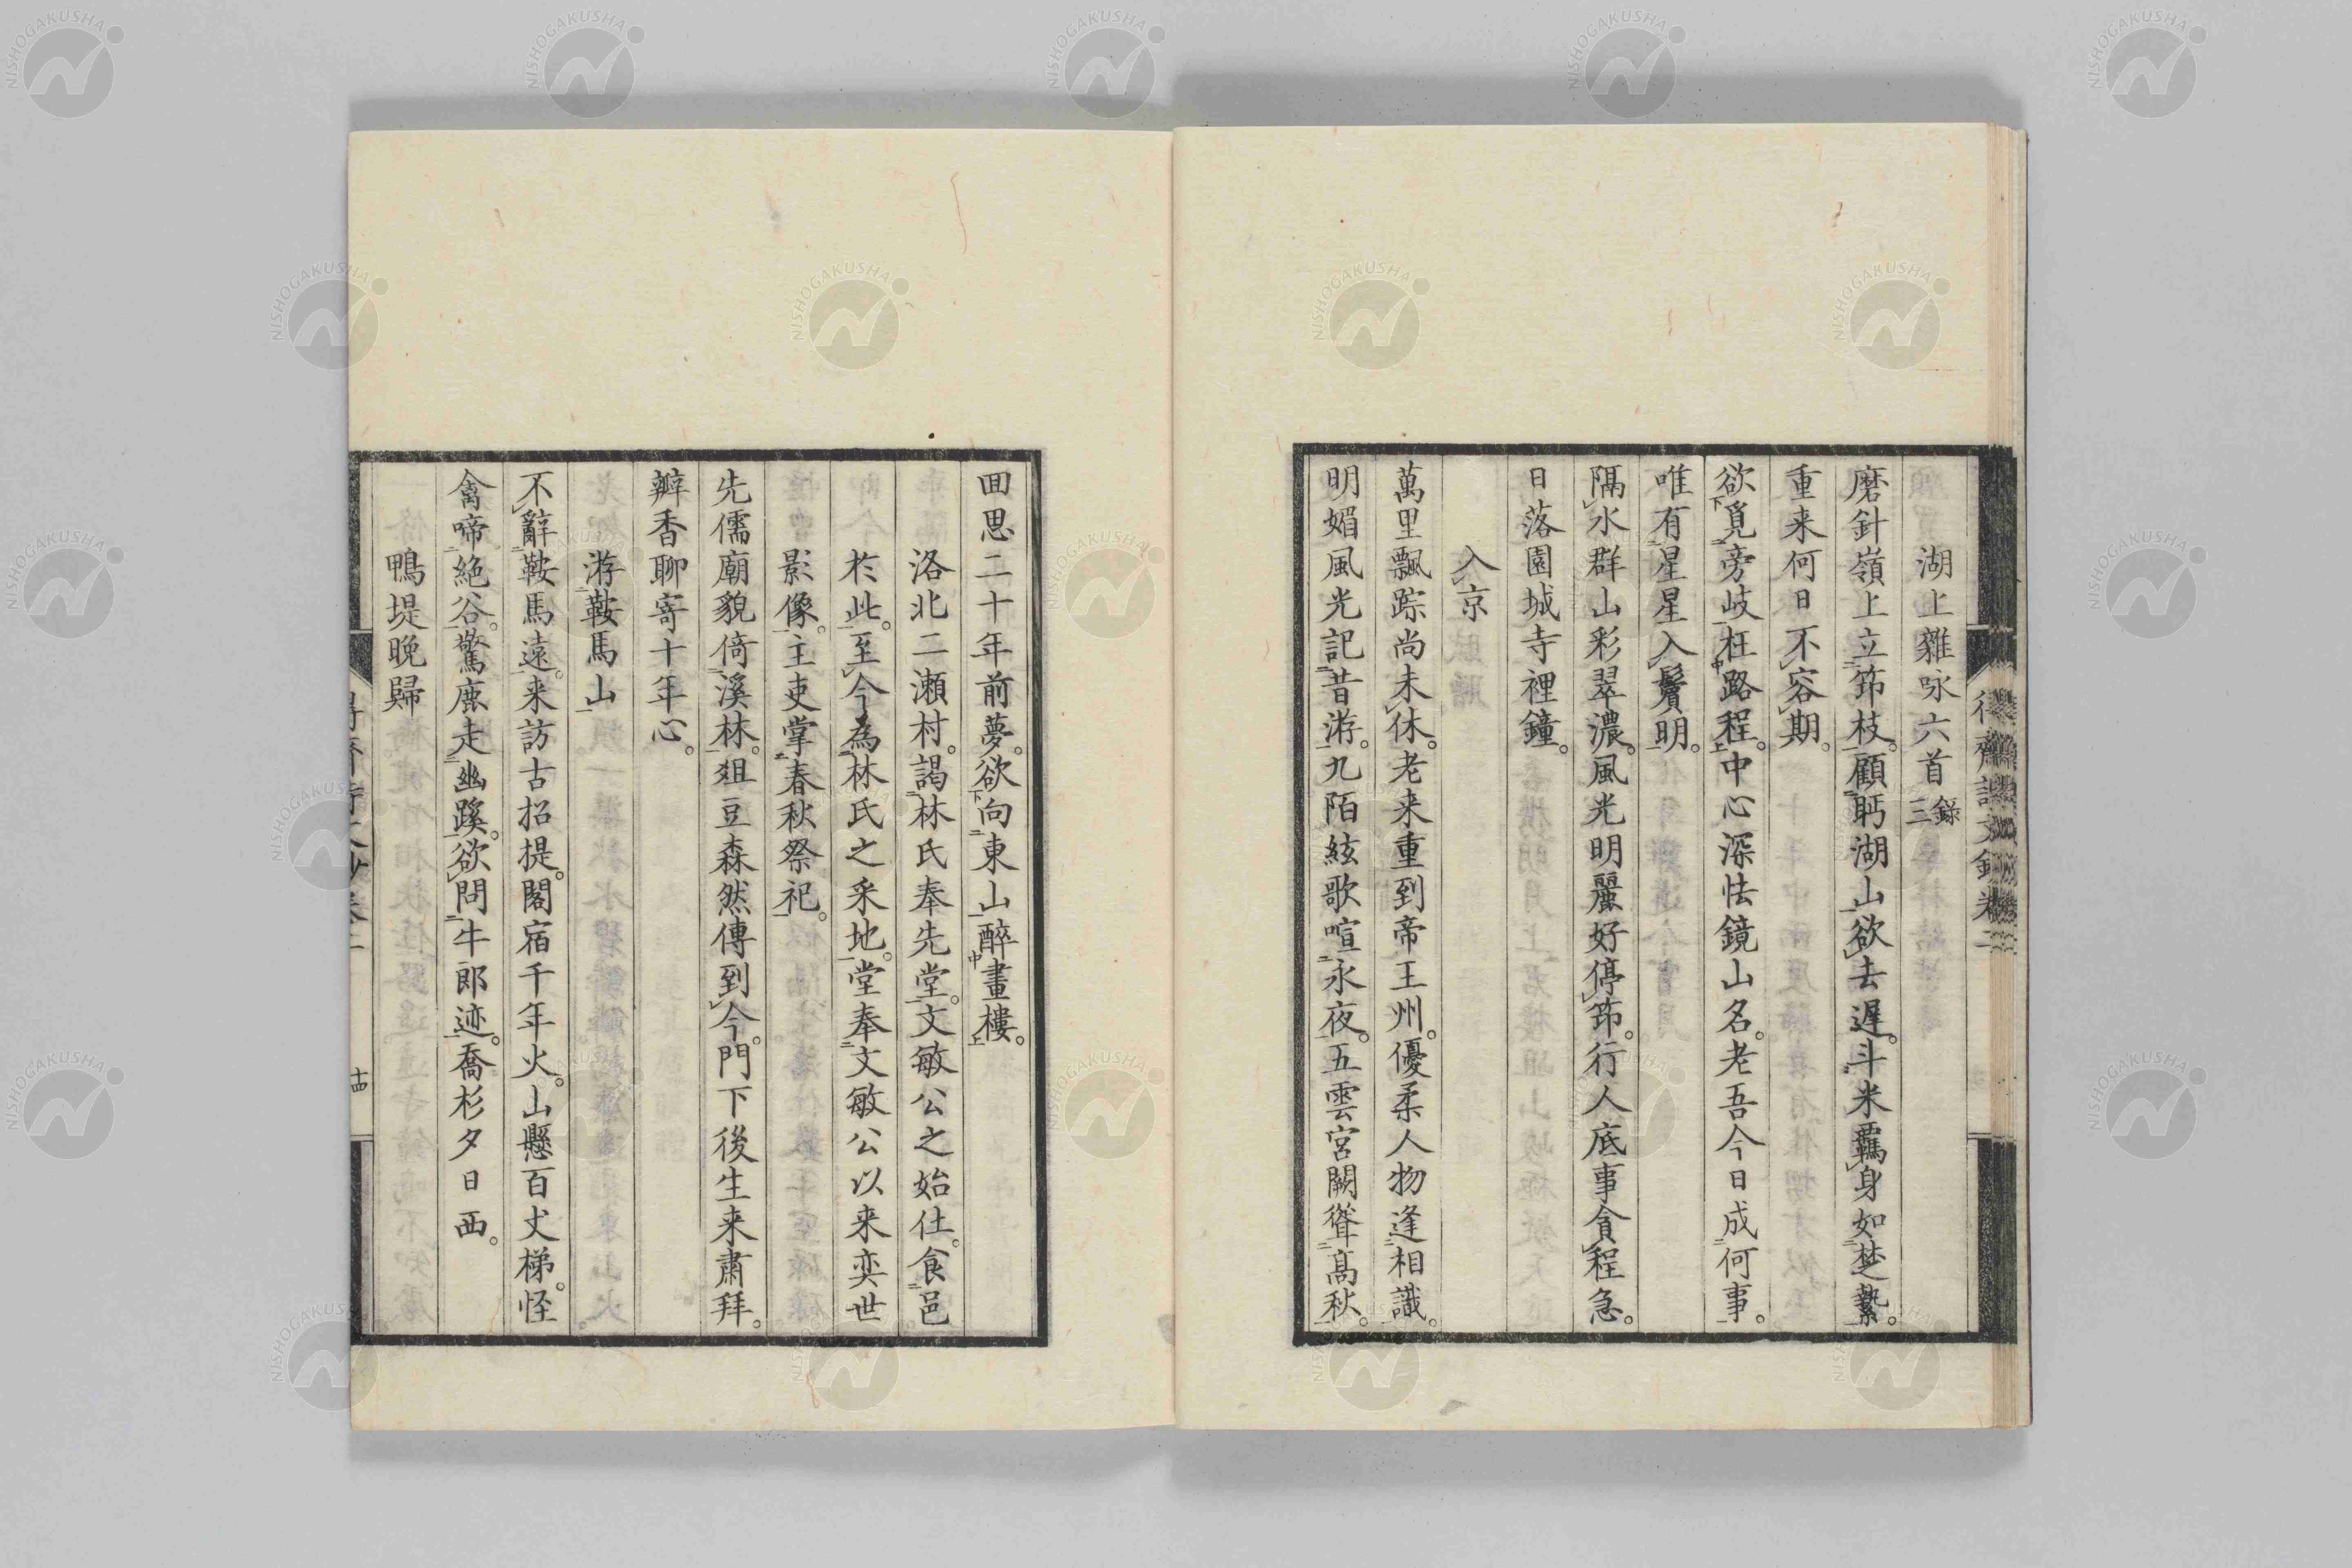 湖上雜咏六首錄三
磨針嶺上立筇枝。顧眄湖山欲去遲。斗米羈身如楚縶。
重来何日不容期。
欲覓旁岐枉路程。中心深怯鏡山名。老吾今日成何事。
唯有星星入鬢明。
隔水群山彩翠濃。風光明麗好停筇。行人底事貪程急。
日落園城寺裡鐘。
入京
萬里飄踪尚未休。老来重到帝王州。優柔人物逢相識。
明媚風光記昔游。九陌絃歌喧永夜。五雲宮闕聳髙秋。
囬思二十年前夢。欲向東山醉畫樓。
洛北二瀬村。謁林氏奉先堂。文敏公之始仕。食邑
於此。至今為林氏之采地。堂奉文敏公以来奕世
影像。主吏掌春秋祭祀。
先儒廟貌倚溪林。俎豆森然傳到今。門下後生来肅拜。
瓣香聊寄十年心。
游鞍馬山
不辭鞍馬遠。来訪古招提。閣宿千年火。山懸百丈梯。怪
禽啼絶谷。驚鹿走幽蹊。欲問牛郎迹。喬杉夕日西。
鴨堤晚歸
十四
NISHOGAKUSHA